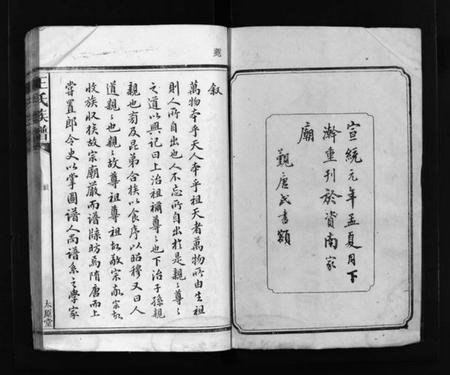 宣統元年孟夏月下
瀚重刊於資南家
廟
觀唐氏書額
敘
萬物本乎天人本乎祖天者萬物所由生祖
則人所自出也人不忘所自出於是親親尊尊
之道以興記曰上治祖禰尊尊也下治子孫親
親也旁及昆弟合族以食序以昭穆又曰人
道親親也親親故尊祖尊祖故敬宗敬宗故
收族收族故宗廟嚴而譜牒昉焉隋唐而上
嘗置郎令史以掌圖譜人尚譜系之學家
王氏族譜
敘
太原堂